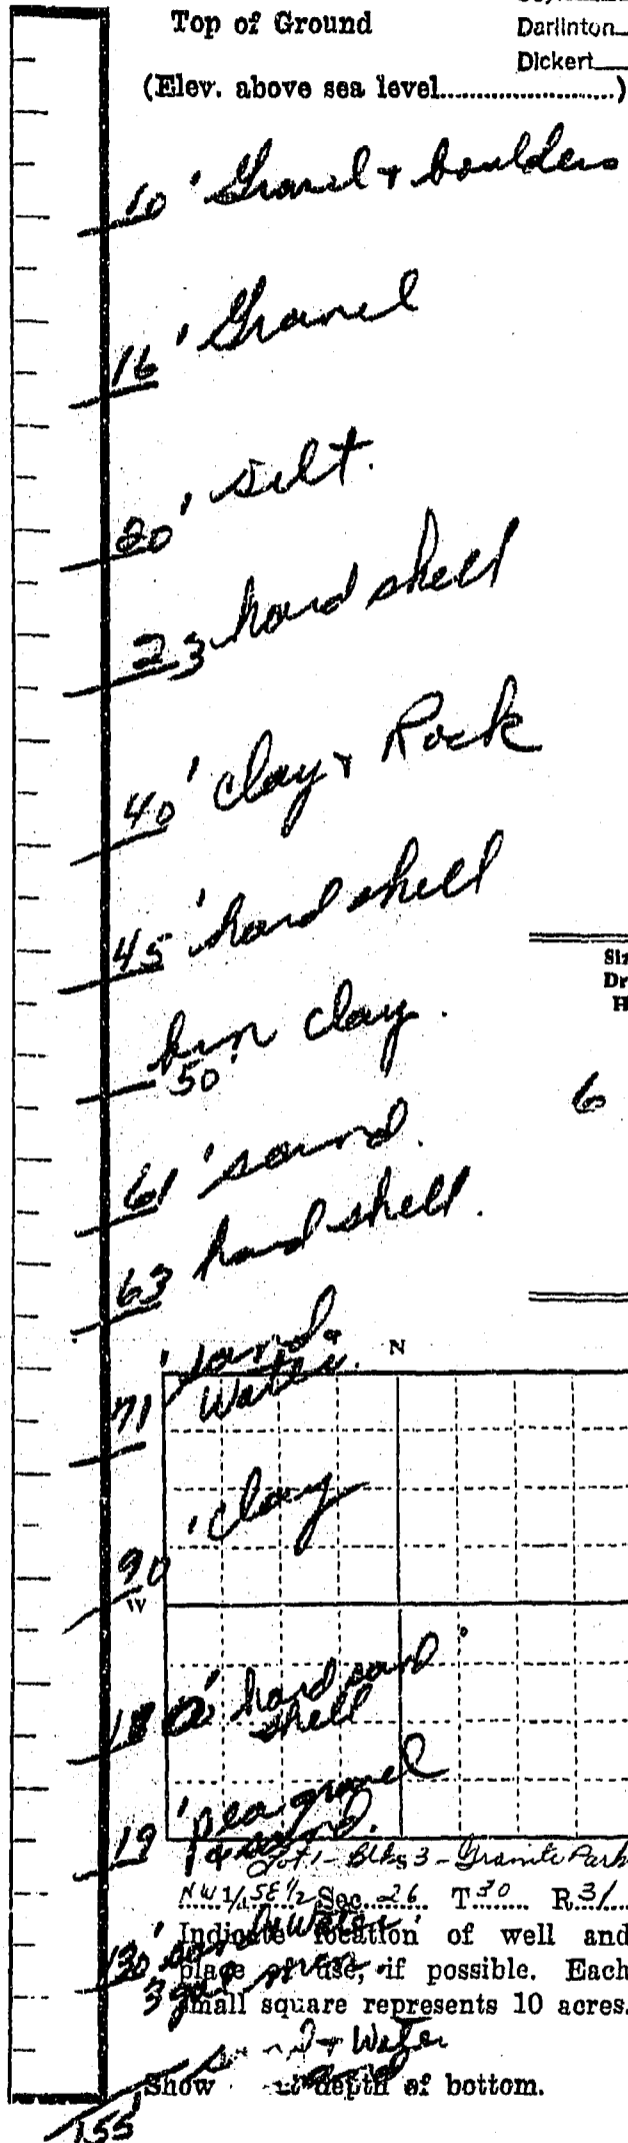 Top of Ground
Darlinton
Dickert
(Elev. above sea level......................)
10' Gravel + boulders
16' Gravel
20' silt.
23 hard shell
40' clay + Rock
45' hard shell
brn clay.
50'
61' sand.
63 hard shell.
71' sand &
Water.
N
'clay
90
W
' hard sand
shell
119 'pea gravel
& sand.
Lot 1 - Blks 3 - Granite Park
NW 1/4 SE 1/2 Sec. 26 T 30 R 31
130' sandy Water
Indicate location of well and
place of use, if possible. Each
3 gal
small square represents 10 acres.
sand + Water
Show at depth of bottom.
155'
Siz
Dr
H
6